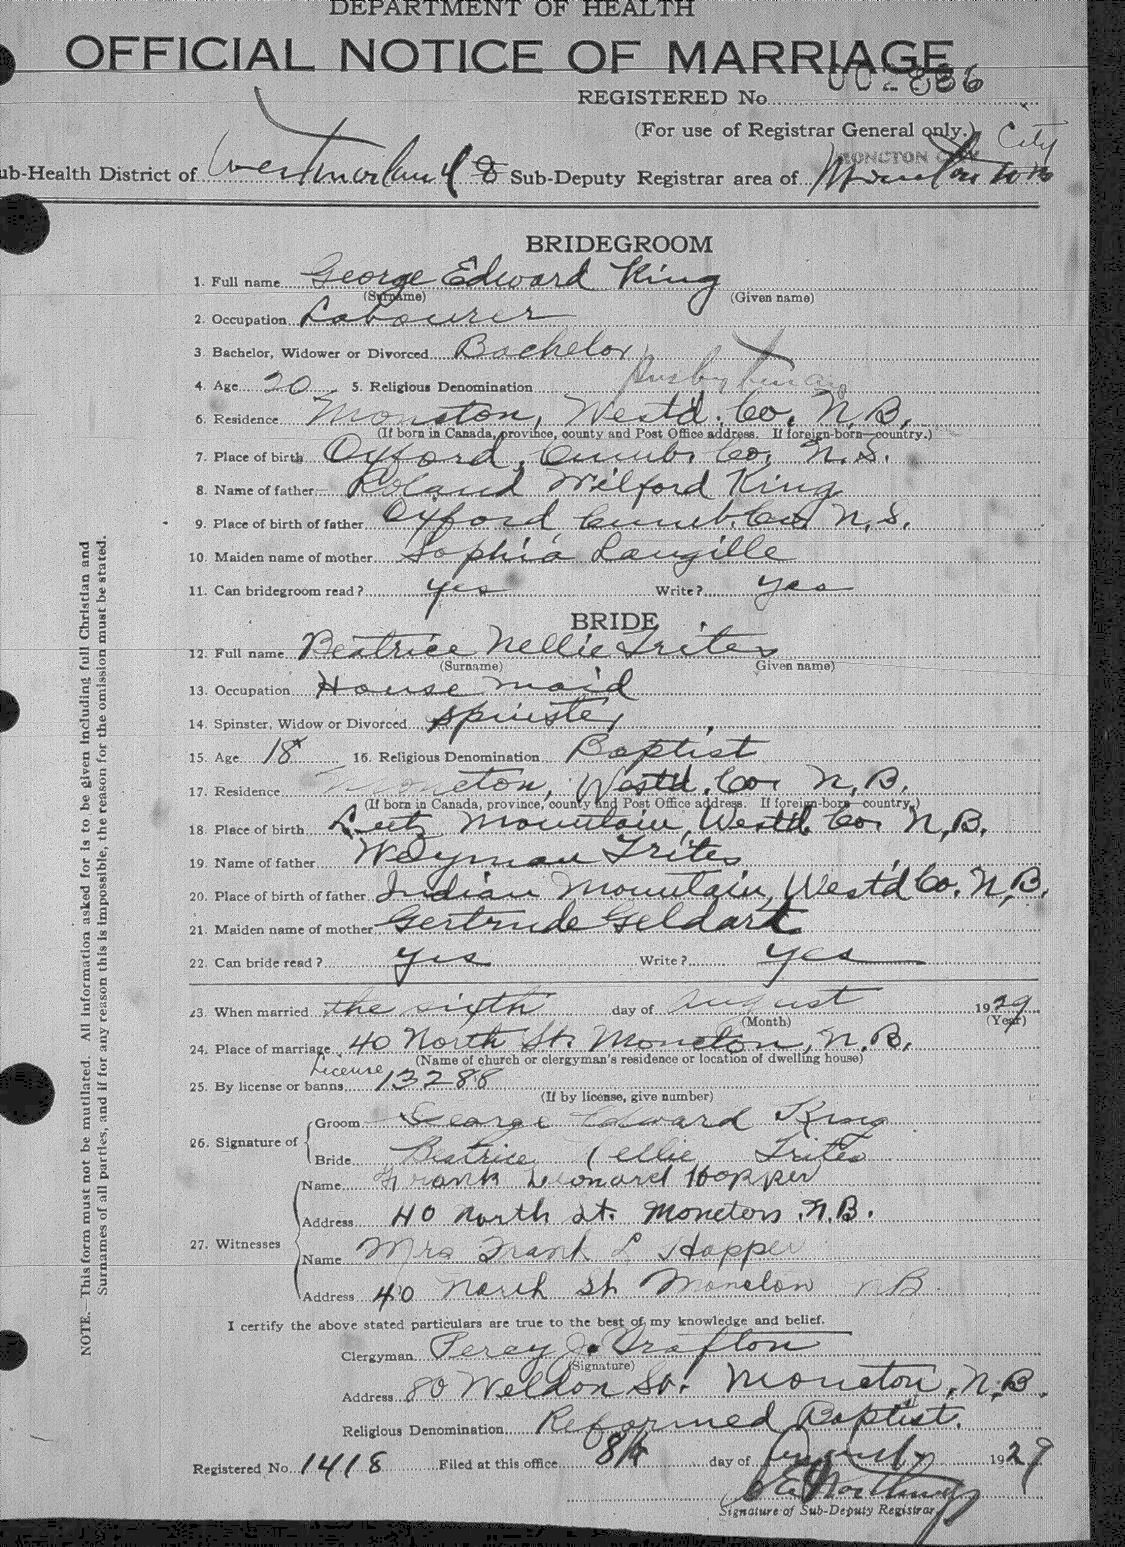 DEPARTMENT OF HEALTH
OFFICIAL NOTICE OF MARRIAGE
REGISTERED No. 002886
(For use of Registrar General only.)
MONCTON CITY City
ub-Health District of Westmorland 8 Sub-Deputy Registrar area of Moncton
BRIDEGROOM
1. Full name George Edward King
(Surname) (Given name)
2. Occupation Labourer
3. Bachelor, Widower or Divorced Bachelor
4. Age 20 5. Religious Denomination
6. Residence Moncton, West'd. Co. N.B.
(If born in Canada, province, county and Post Office address. If foreign-born—country.)
7. Place of birth Oxford, Cumb. Co. N.S.
8. Name of father Roland Wilford King
9. Place of birth of father Oxford Cumb. Co. N.S.
10. Maiden name of mother Sophia Langille
11. Can bridegroom read? yes Write? yes
BRIDE
12. Full name Beatrice Nellie Trites
(Surname) Given name)
13. Occupation House maid
14. Spinster, Widow or Divorced Spinster
15. Age 18 16. Religious Denomination Baptist
17. Residence Moncton, West'd. Co. N.B.
(If born in Canada, province, county and Post Office address. If foreign-born—country.)
18. Place of birth Lutz Mountain, West'd. Co. N.B.
19. Name of father Weyman Trites
20. Place of birth of father Indian Mountain, West'd Co. N.B.
21. Maiden name of mother Gertrude Geldart
22. Can bride read? yes Write? yes
23. When married the sixth day of August 1929
(Month) (Year)
24. Place of marriage 40 North St. Moncton, N.B.
(Name of church or clergyman's residence or location of dwelling house)
25. By license or banns License 13288
(If by license, give number)
26. Signature of
Groom George Edward King
Bride Beatrice Nellie Trites
27. Witnesses
Name Frank Leonard Hopper
Address 40 North St. Moncton N.B.
Name Mrs Frank L Hopper
Address 40 North St Moncton NB
I certify the above stated particulars are true to the best of my knowledge and belief.
Clergyman Percy J. Trafton
(Signature)
Address 80 Weldon St. Moncton, N.B.
Religious Denomination Reformed Baptist.
Registered No. 1418 Filed at this office 8th day of August 1929
Signature of Sub-Deputy Registrar
NOTE.—This form must not be mutilated. All information asked for is to be given including full Christian and
Surnames of all parties, and if for any reason this is impossible, the reason for the omission must be stated.